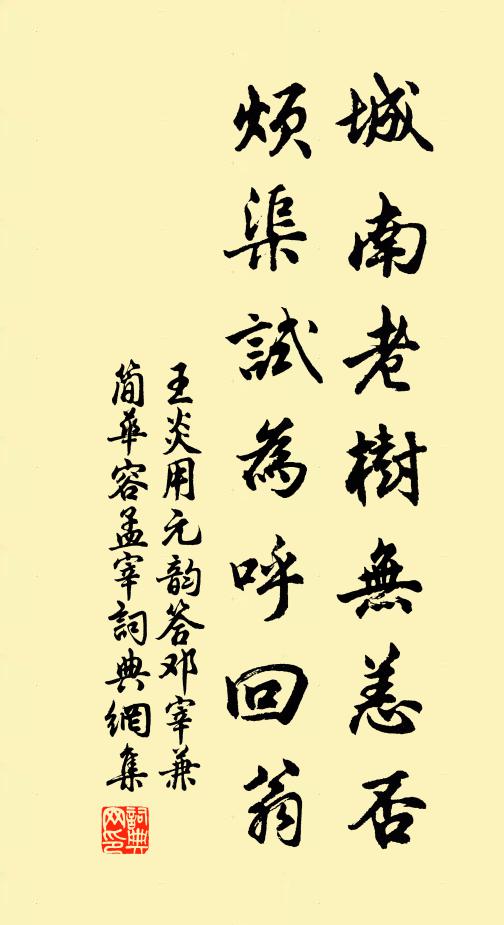 城南老樹無恙否
煩渠試為呼回翁
王炎用元韵答邓宰兼
简華容孟宰詞典網集
詞典
网印